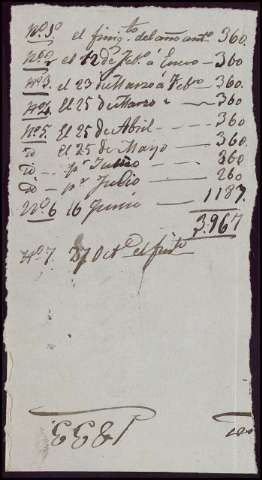 Nº 1º el finiqto del año antº 360.
Nº 2º el 12 de Febº á Enero - 360
Nº 3. el 23 de Marzo á Febº - 360
Nº 4. El 25 de Marzo - 360
Nº 5. El 25 de Abril - 360
Id el 25 de Mayo - 360
Id - pr Junio - 360
Id - pr Julio - 260
Nº 6 16 Junio - 1187
3.967
Nº 7. 27 Octe el finto
1833